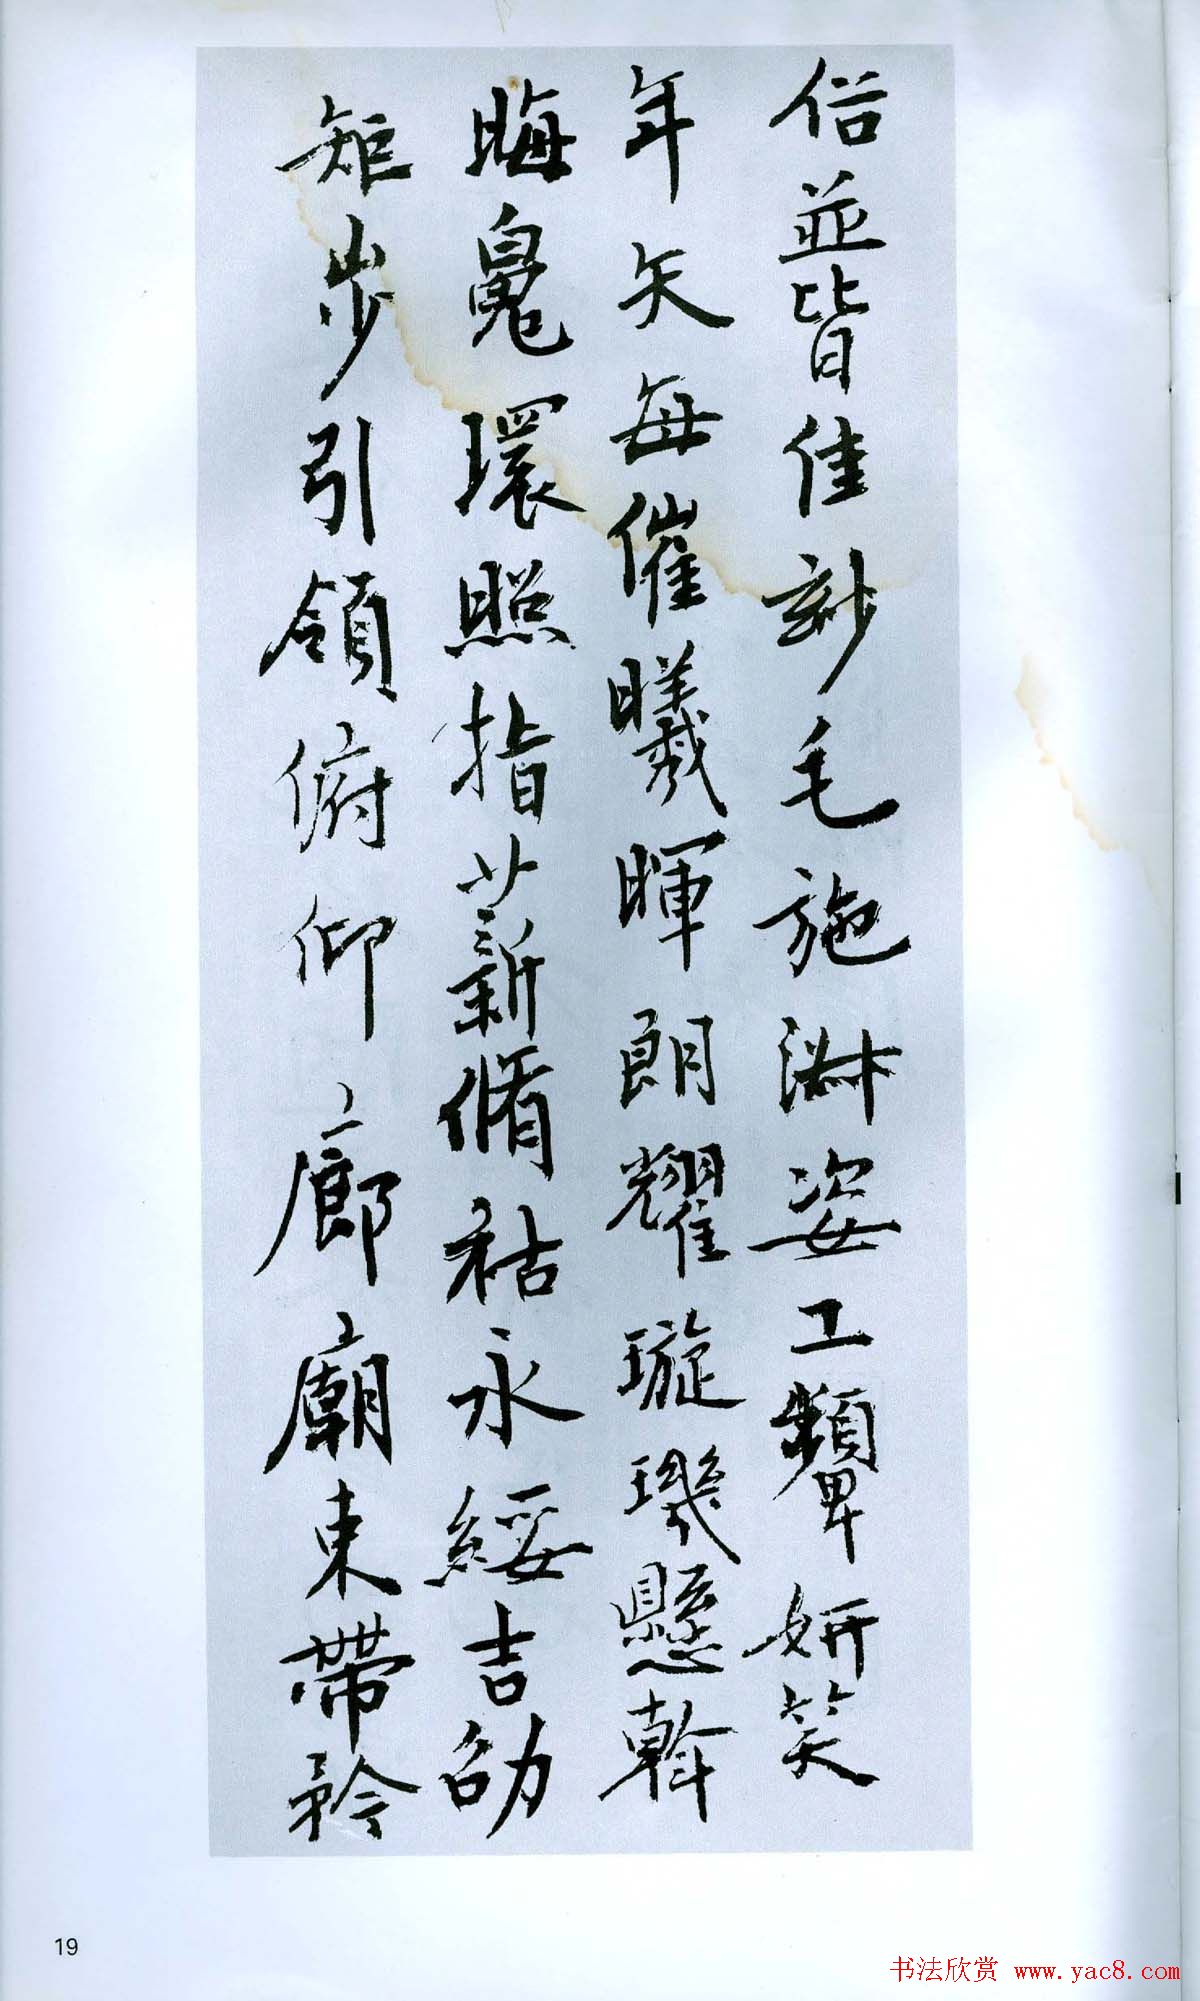 俗並皆佳妙毛施淑姿工顰妍笑
年矢每催曦暉朗耀璇璣懸斡
晦魄環照指薪脩祜永綏吉劭
矩步引領俯仰廊廟束帶矜
19
书法欣赏 www.yac8.com